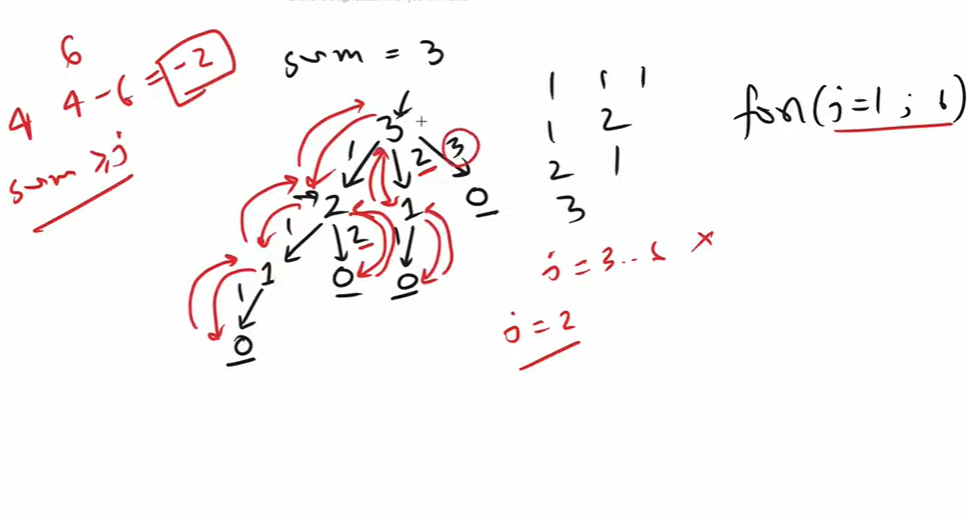 6
4 4 - 6 = -2
sum ≥ j
sum = 3
3
1 2 3
2 1 0
1 2 1
1 0 0
1
0
1 1 1
1 2
2 1
3
j = 3 .. 6 ×
j = 2
for(j=1 ; 6)